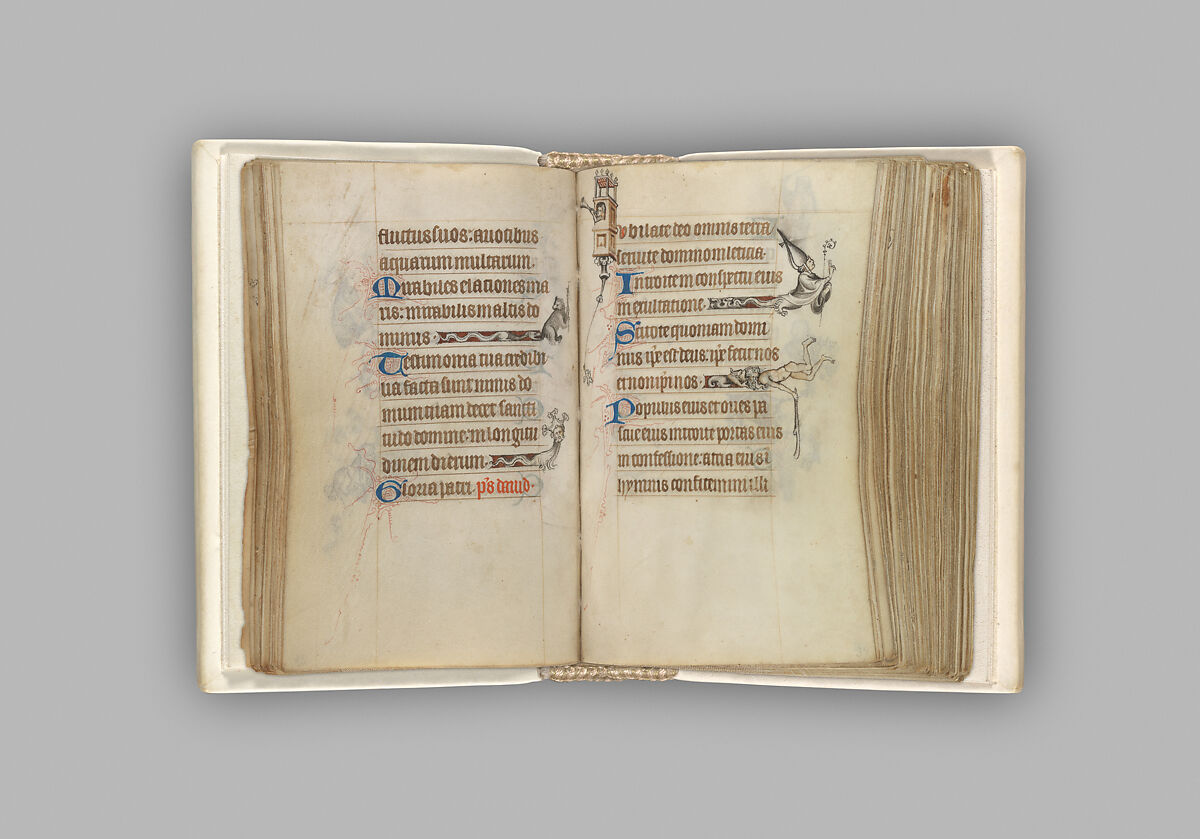 fluctus suos: a uocibus
aquarum multarum.
Mirabiles elationes ma
ris: mirabilis in altis do
minus.
Testimonia tua credibi
lia facta sunt nimis do
mum tuam decet sancti
tudo domine. in longitu
dinem dierum.
Gloria patri. ps dauid.
ubilate deo omnis terra
seruite domino in leticia.
Introite in conspectu eius
in exultatione.
Scitote quoniam domi
nus ipe est deus: ipe fecit nos
et non ipi nos.
Populus eius et oues pa
scue eius introite portas eius
in confessione: atria eius i
hymnis confitemini illi